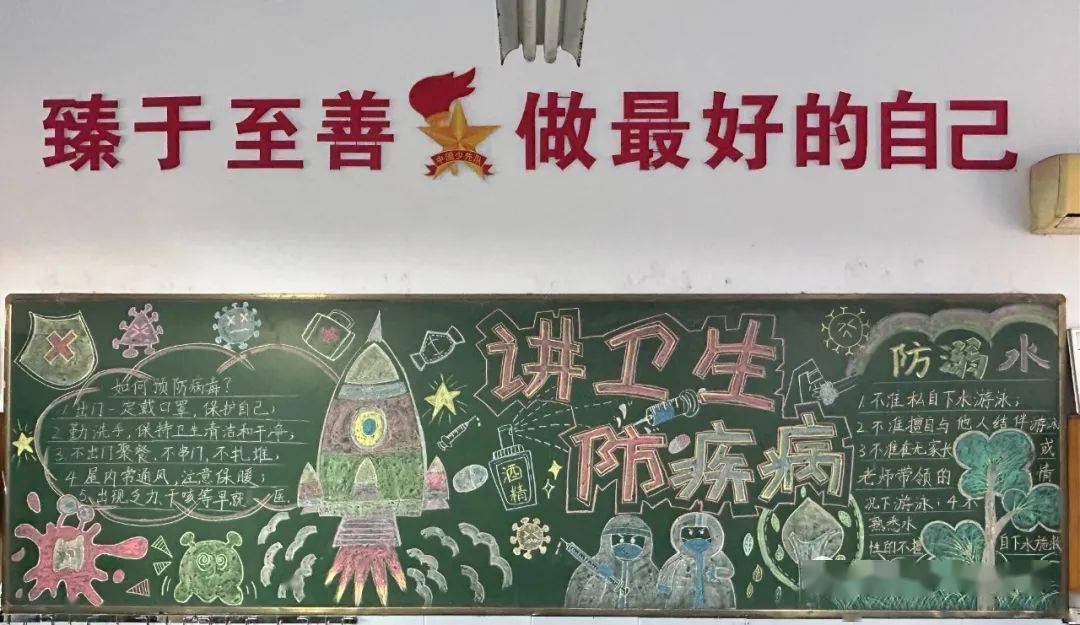 臻于至善
中国少先队
做最好的自己
如何预防病毒？
1.出门一定戴口罩，保护自己；
2.勤洗手，保持卫生清洁和干净，
3.不出门聚餐，不串门，不扎堆，
4.屋内常通风，注意保暖；
5.出现乏力干咳等早就 医
讲卫生
防疾病
酒精
防溺水
1.不准私自下水游泳；
2.不准擅自与他人结伴游泳
3.不准在无家长或
老师带领的情
况下游泳；4.不
熟悉水
性的不 自下水施救